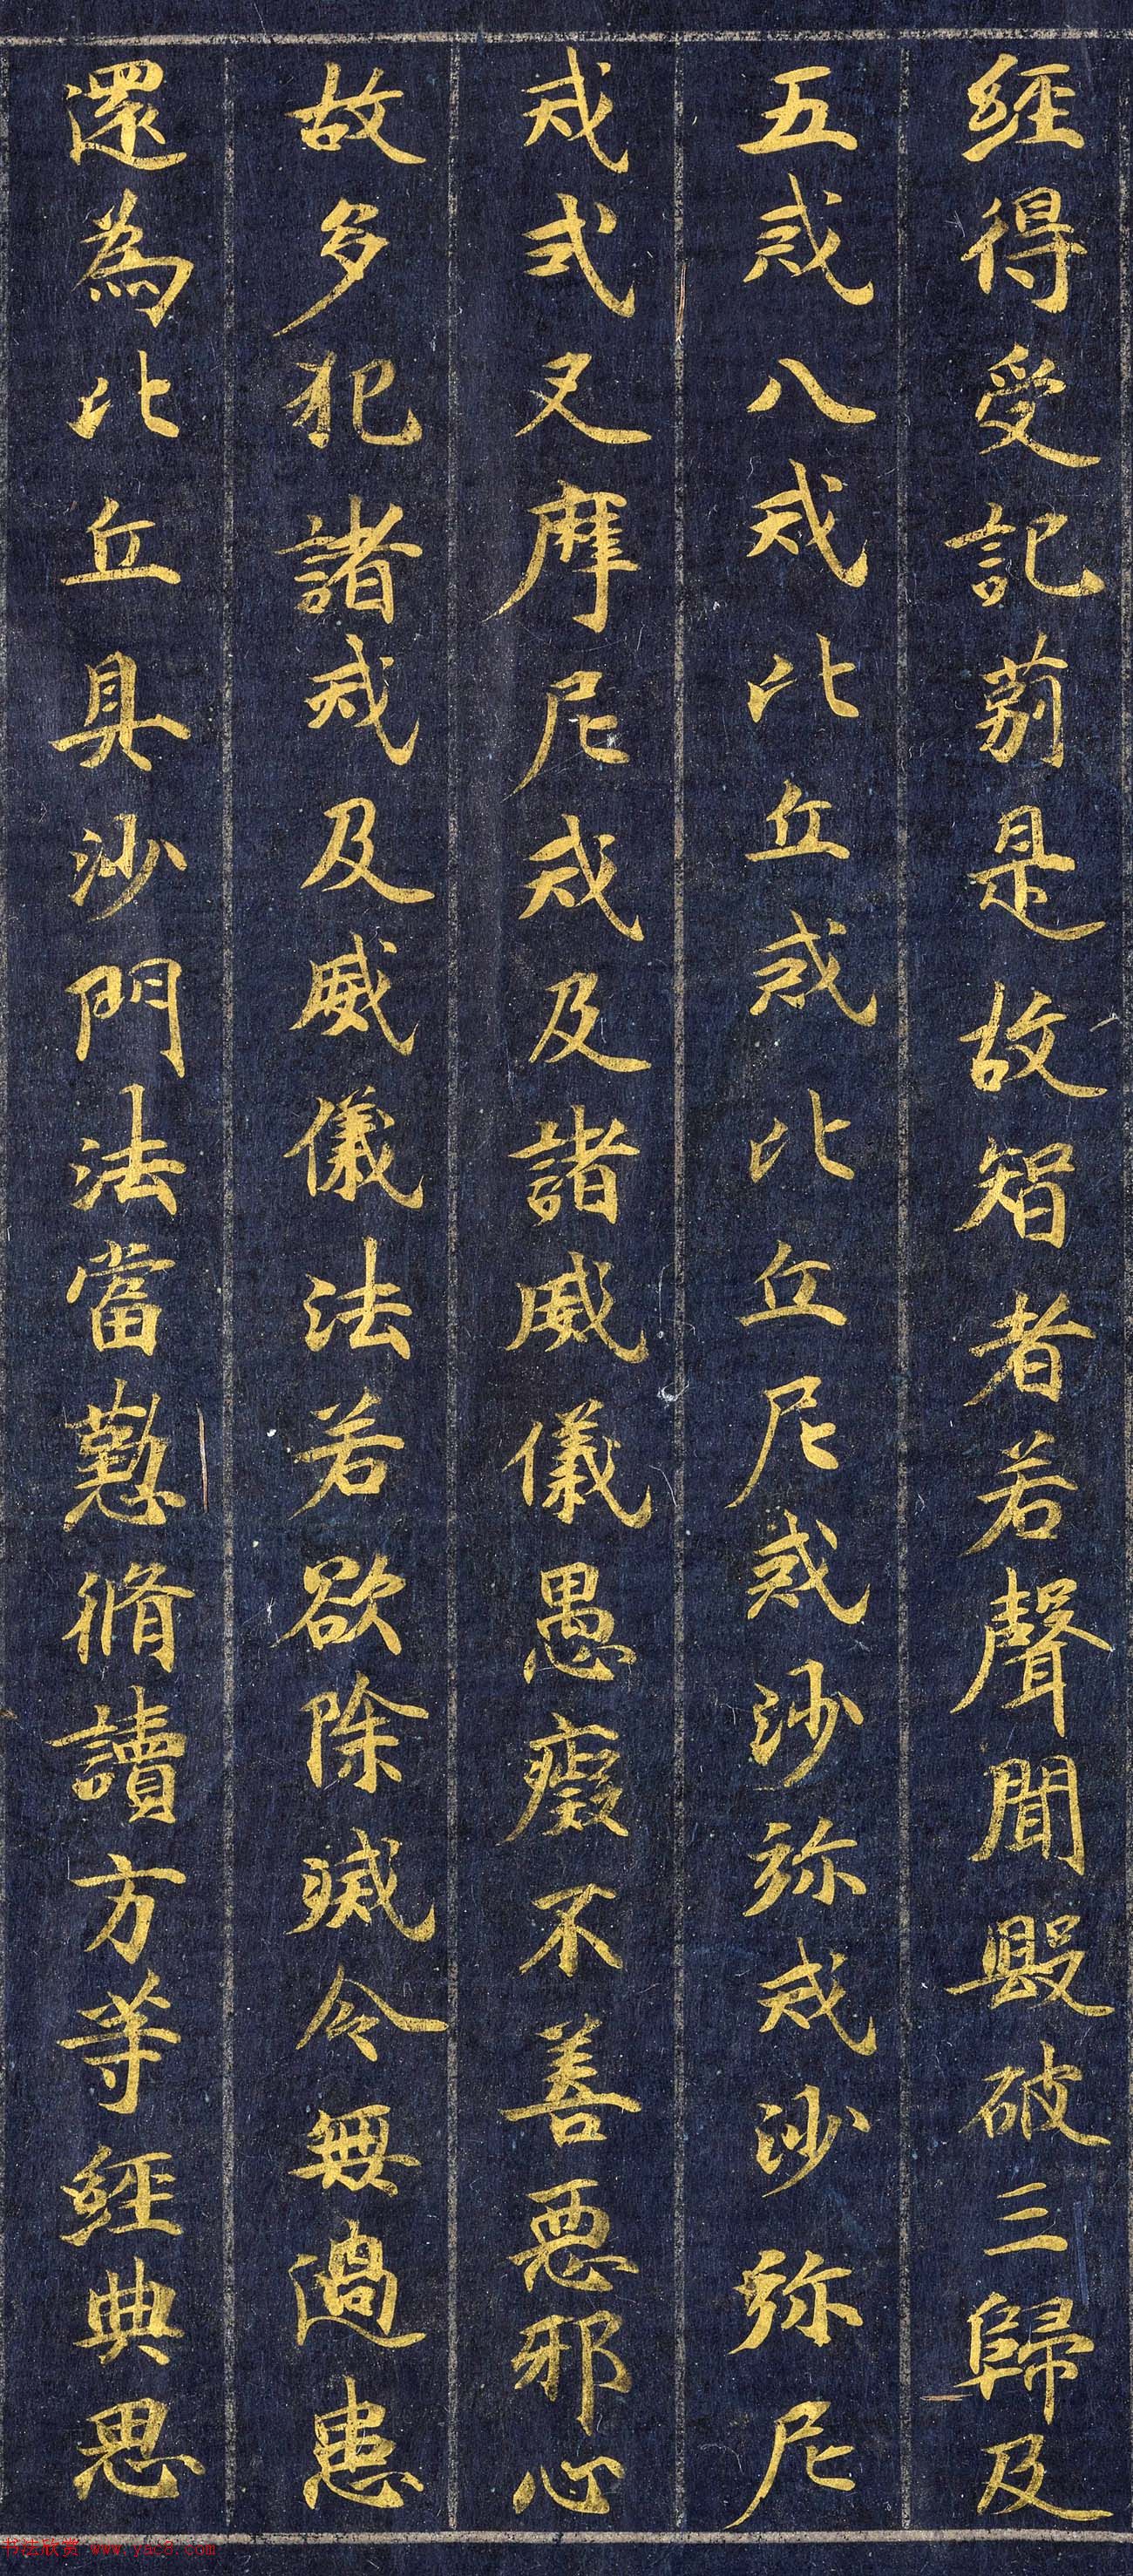 經得受記莂是故智者若聲聞毀破三歸及
五戒八戒比丘戒比丘尼戒沙弥戒沙弥尼
戒式叉摩尼戒及諸威儀愚癡不善惡邪心
故多犯諸戒及威儀法若欲除滅令無過患
還為比丘具沙門法當懃脩讀方等經典思
书法欣赏 www.yac8.com